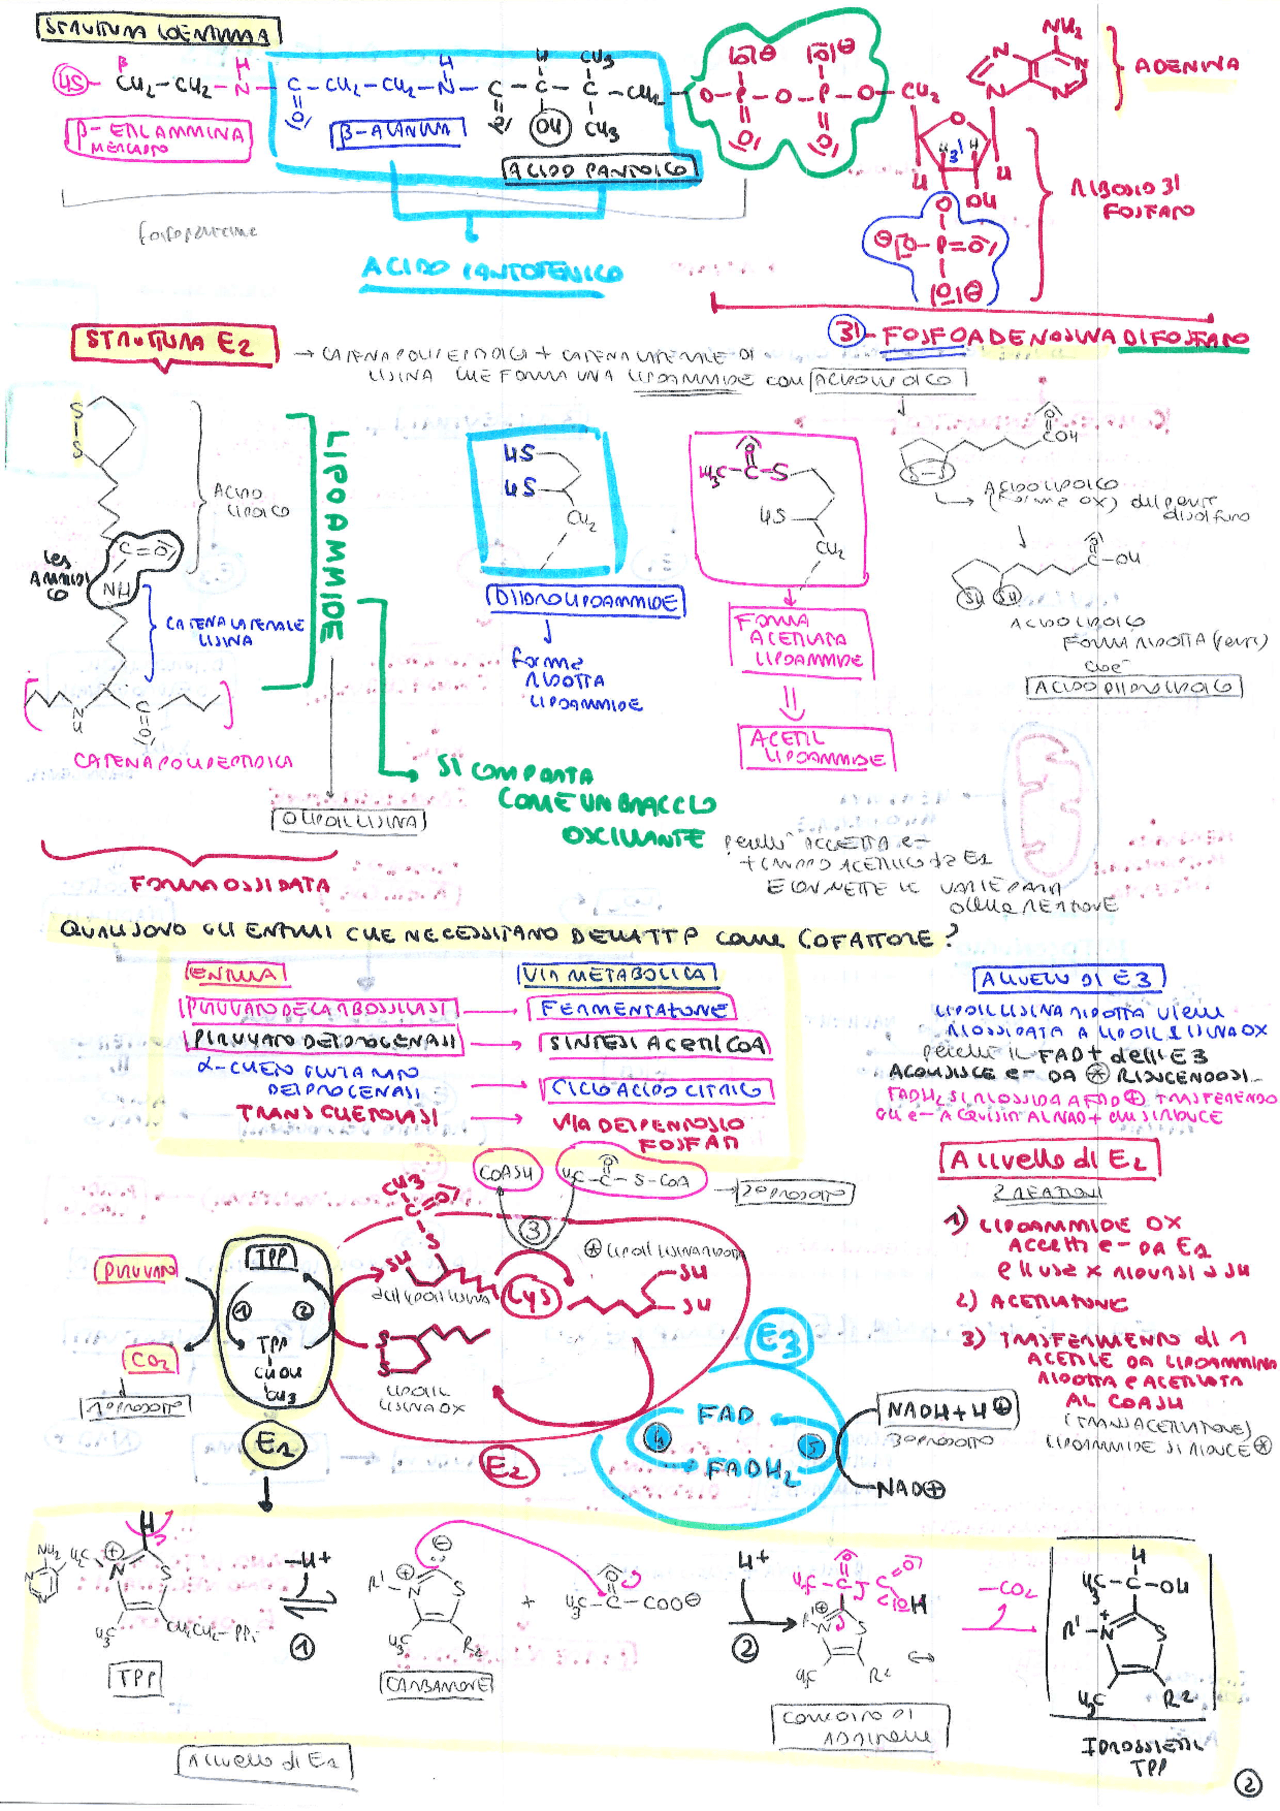 STRUTTURA COENZIMA
HS - CH2 - CH2 - N - C - CH2 - CH2 - N - C - C - C - CH2 - O - P - O - P - O - CH2
NH2
ADENINA
β-ETILAMMINA
MERCAPTO
β-ALANINA
OH
CH3
CH3
ACIDO PANTOICO
RIBOSIO 3'
FOSFATO
ACIDO PANTOTENICO
3'-FOSFOADENOSINA DIFOSFATO
STRUTTURA E2
→ CATENA POLIPEPTIDICA + CATENA LATERALE DI
LISINA CHE FORMA UNA LIPOAMMIDE CON ACIDO LIPOICO
S
S
ACIDO
LIPOICO
LIPOAMMIDE
C=O
NH
CATENA LATERALE
LISINA
CATENA POLIPEPTIDICA
HS
HS
CH2
DIIDROLIPOAMMIDE
forma
RIDOTTA
LIPOAMMIDE
H3C-C-S
HS
CH2
FORMA
ACETILATA
LIPOAMMIDE
ACETIL
LIPOAMMIDE
COH
S-S
ACIDO LIPOICO
(forma OX)
disolfuro
C-OH
SH SH
ACIDO LIPOICO
FORMA RIDOTTA
cioè
ACIDO DIIDROLIPOICO
SI COMPORTA
COME UN BRACCIO
OSCILLANTE
perché ACCETTA e-
+ GRUPPO ACETILICO da E1
E CONNETTE LE VARIE PARTI
DELLA REAZIONE
LIPOIL LISINA
FORMA OSSIDATA
QUALI SONO GLI ENZIMI CHE NECESSITANO DELLA TTP COME COFATTORE?
ENZIMA
VIA METABOLICA
PIRUVATO DECARBOSSILASI → FERMENTAZIONE
PIRUVATO DEIDROGENASI → SINTESI ACETIL COA
α-CHETO GLUTARATO
DEIDROGENASI → CICLO ACIDO CITRICO
TRANSCHETOLASI → VIA DEI PENTOSIO
FOSFATI
A LIVELLO DI E3
LIPOIL LISINA RIDOTTA viene
RIOSSIDATA A LIPOIL LISINA OX
perché il FAD+ dell'E3
ACQUISISCE e- DA ⊛ RIDUCENDOSI.
FADH2 SI RIOSSIDA A FAD⊕ TRASFERENDO
GLI e- ACQUISITI AL NAD+ CHE SI RIDUCE
A livello di E2
2 REAZIONI
1) LIPOAMMIDE OX
ACCETTA e- DA E1
e li usa x ridursi a SH
2) ACETILAZIONE
3) TRASFERIMENTO di 1
ACETILE DA LIPOAMMINA
RIDOTTA e ACETILATA
AL COASH
(TRANSACETILAZIONE)
LIPOAMMIDE SI RIDUCE ⊛
COASH
H3C-C-S-COA
2o PRODOTTO
CH3
C=O
S
SH
3
⊛ LIPOIL LISINA RIDOTTA
PIRUVATO
CO2
1o PRODOTTO
TPP
1
2
TPP
CHOH
CH3
E1
LYS
SH
SH
S
S
LIPOIL
LISINA OX
E2
E3
FAD
4
5
FADH2
NADH+H⊕
3o PRODOTTO
NAD⊕
NH2
H2C
H
N
S
H3C
CH2CH2-PPi
TPP
-H+
1
R'
N
S
H3C
R2
CARBANIONE
+
H3C-C-COO⊖
H+
2
H3C
R'
S
H3C
R2
COMPOSTO DI
ADDIZIONE
-CO2
H
H3C-C-OH
R'-N
S
H3C
R2
IDROSSIETIL
TPP
A livello di E1
2